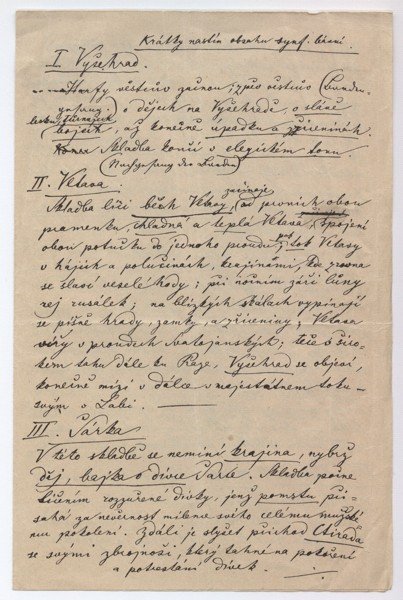 Krátký nástin obsahu symf. básní.
I. Vyšehrad.
Harfy věštců začnou; zpěv věštců (Barden-
gesang) o dějech na Vyšehradu, o slávě
lesku, turnajích
bojích, až konečně úpadku a zříceninách.
Skladba končí v elegickém tónu.
(Nachgesang der Barden)
II. Vltava.
Skladba líčí běh Vltavy, začínajíc
od prvních obou
pramenků, chladná a teplá Vltava, spojení
obou potůčků do jednoho proudu; pak tok Vltavy
v hájích a po lučinách, krajinami, kde zrovna
se slaví veselé hody; při nočním záři lůny
rej rusalek; na blízkých skalách vypínají
se pyšné hrady, zámky a zříceniny. Vltava
víří v proudech Svatojanských; teče v široš-
kém toku dále ku Praze, Vyšehrad se objeví,
konečně mizí v dálce v majestátním toku
svým v Labi.
III. Šárka
V této skladbě se nemíní krajina, nybrž
děj, bajka o dívce Šárce. Skladba počne
líčením rozzuřené dívky, jenž pomstu při-
sahá za nevěrnost milence svého celému mužské-
mu pokolení. Zdáli je slyšet příchod Ctirada
se svými zbrojnoši, který táhne na pokoření
a potrestání dívek.